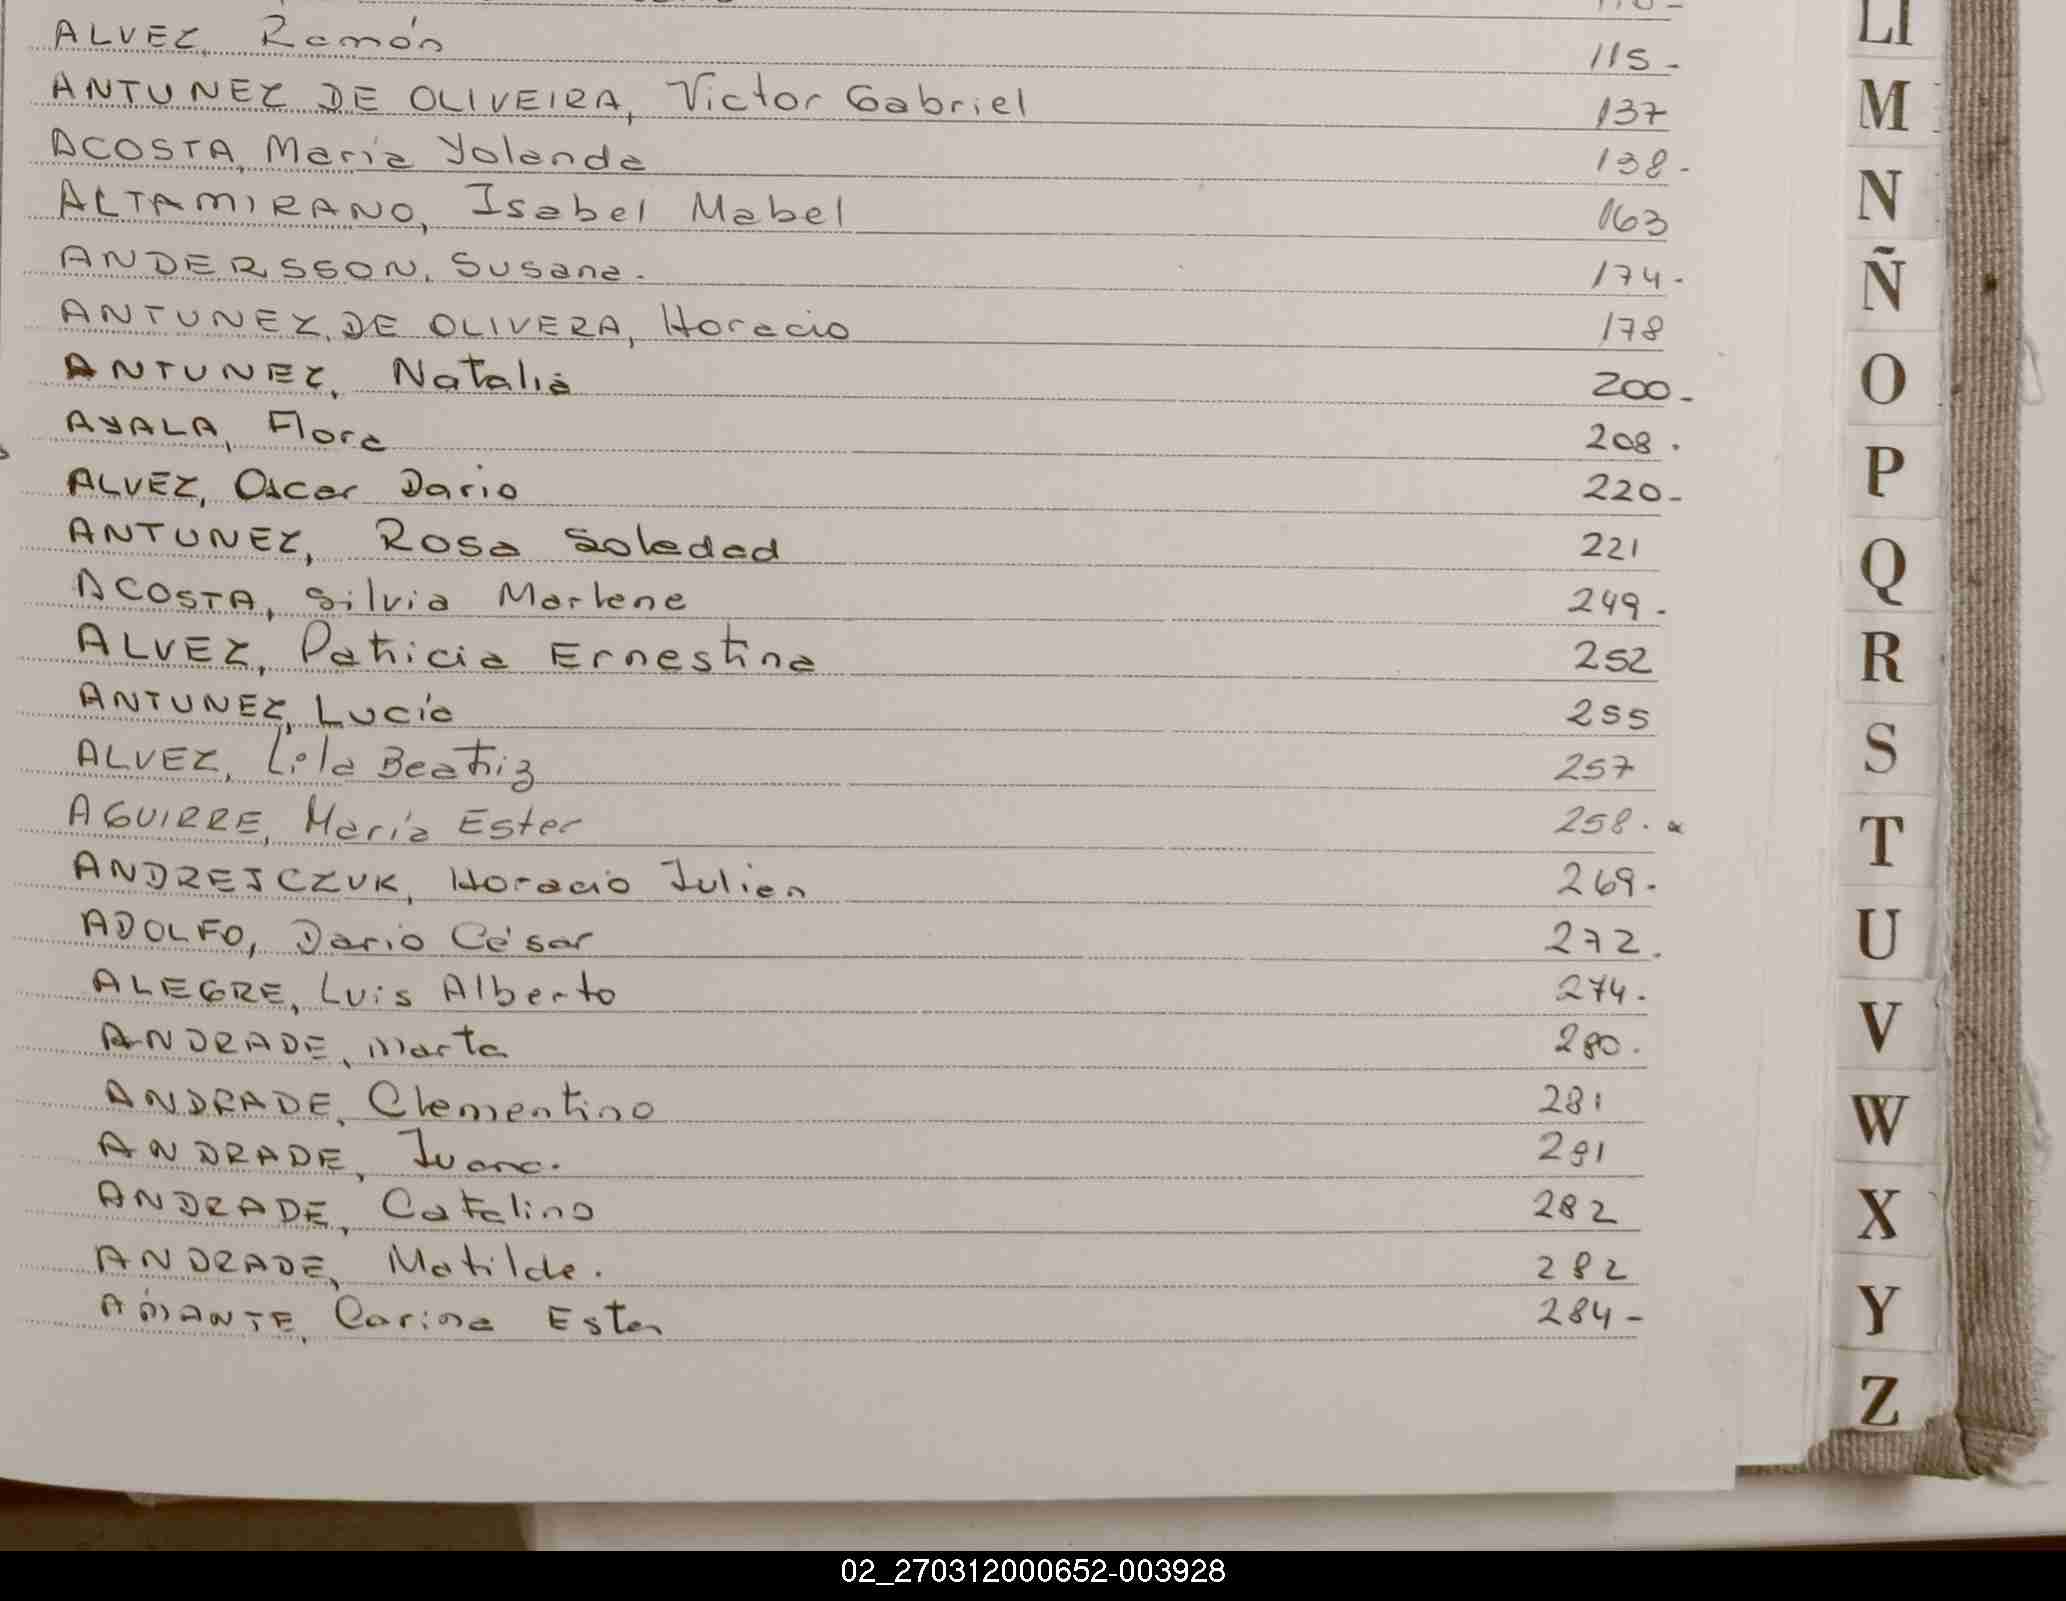 ALVEZ, Ramón 115-
ANTUNEZ DE OLIVEIRA, Victor Gabriel 137
ACOSTA, María Yolanda 138-
ALTAMIRANO, Isabel Mabel 163
ANDERSSON, Susana. 174-
ANTUNEZ, DE OLIVERA, Horacio 178
ANTUNEZ, Natalia 200-
AYALA, Flora 208.
ALVEZ, Oscar Dario 220-
ANTUNEZ, Rosa Soledad 221
ACOSTA, Silvia Marlene 249.
ALVEZ, Patricia Ernestina 252
ANTUNEZ, Lucía 255
ALVEZ, Lila Beatriz 257
AGUIRRE, María Ester 258.
ANDREJCZUK, Horacio Julian 269.
ADOLFO, Dario César 272.
ALEGRE, Luis Alberto 274.
ANDRADE, Marta 280.
ANDRADE, Clementino 281
ANDRADE, Juana. 281
ANDRADE, Catalino 282
ANDRADE, Matilde. 282
AMANTE, Carina Ester 284-
Ll
M
N
Ñ
O
P
Q
R
S
T
U
V
W
X
Y
Z
02_270312000652-003928